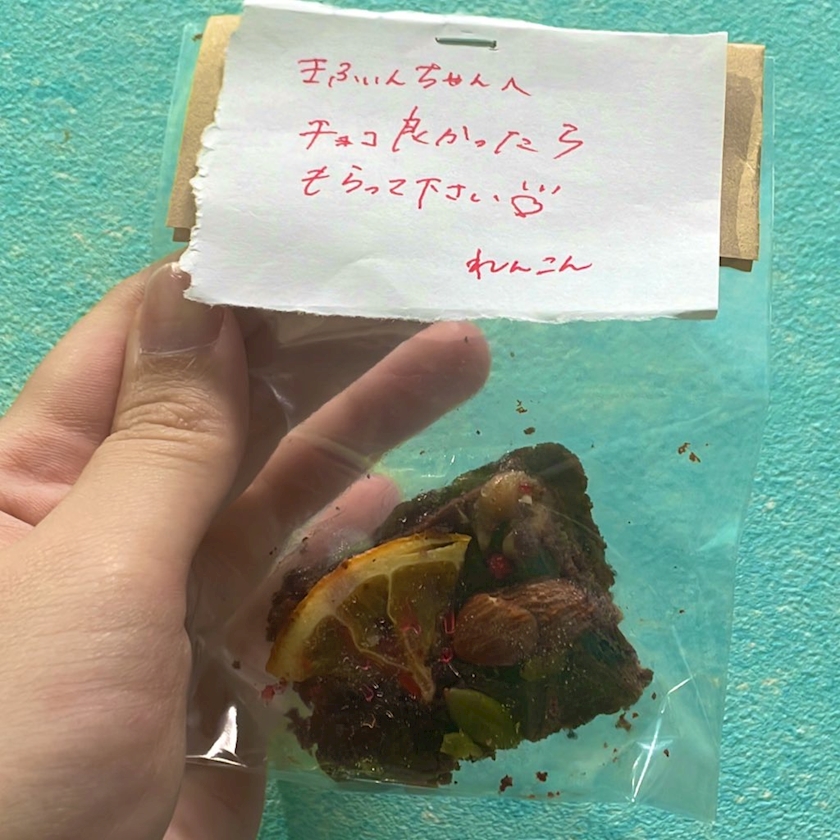 まふぃんちゃんへ
チョコ良かったら
もらって下さい
れんこん